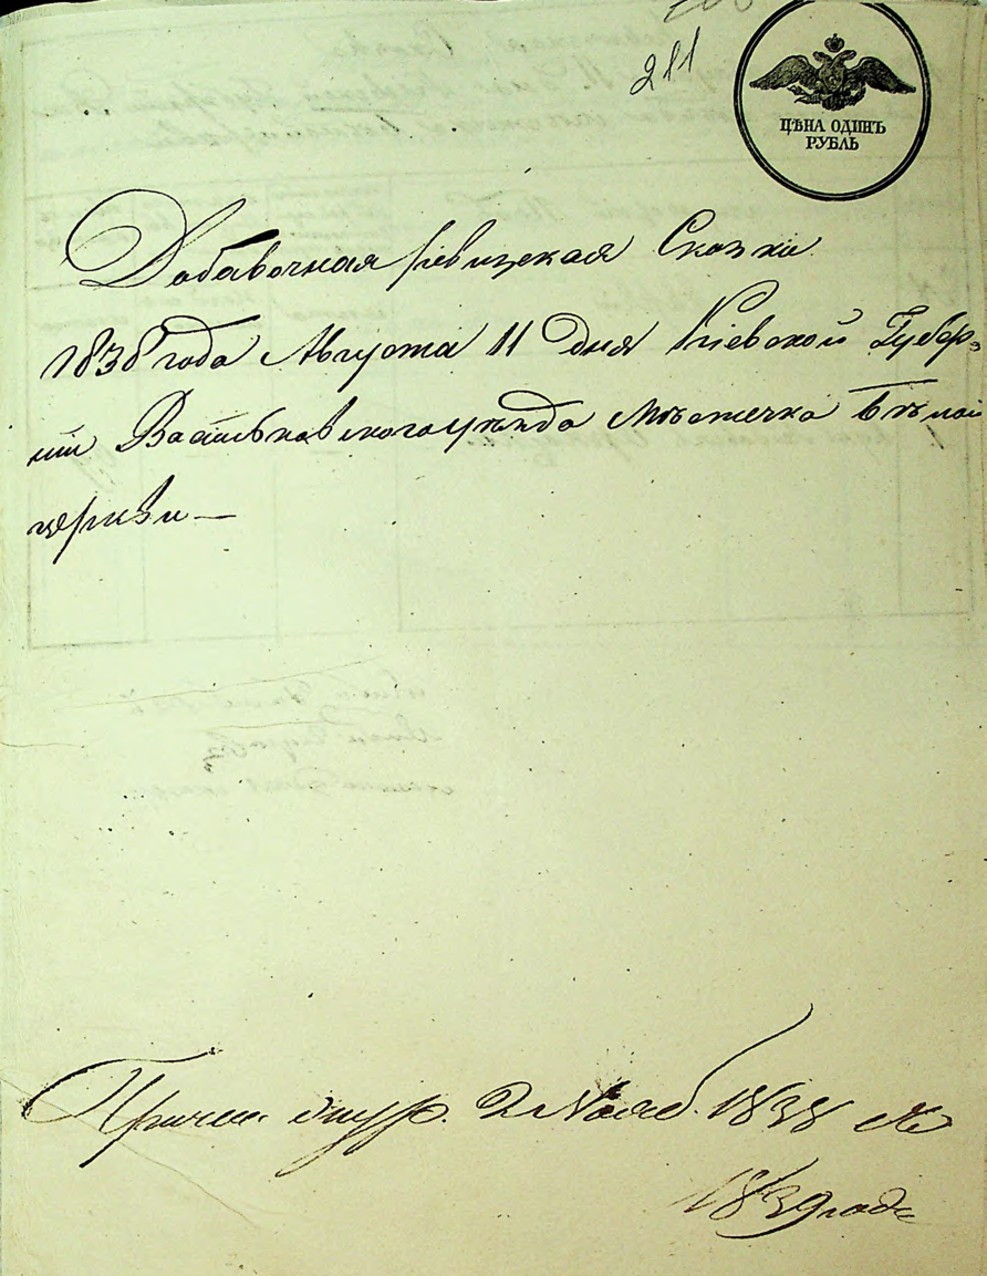 211
ЦѢНА ОДИНЪ
РУБЛЬ
Добавочная ревизская Сказка
1838 года Августа 11 дня Кіевской Губер-
ніи Васильковскаго уѣзда Мѣстечка Бѣлой
церкви
2 Нояб. 1838
1839 года